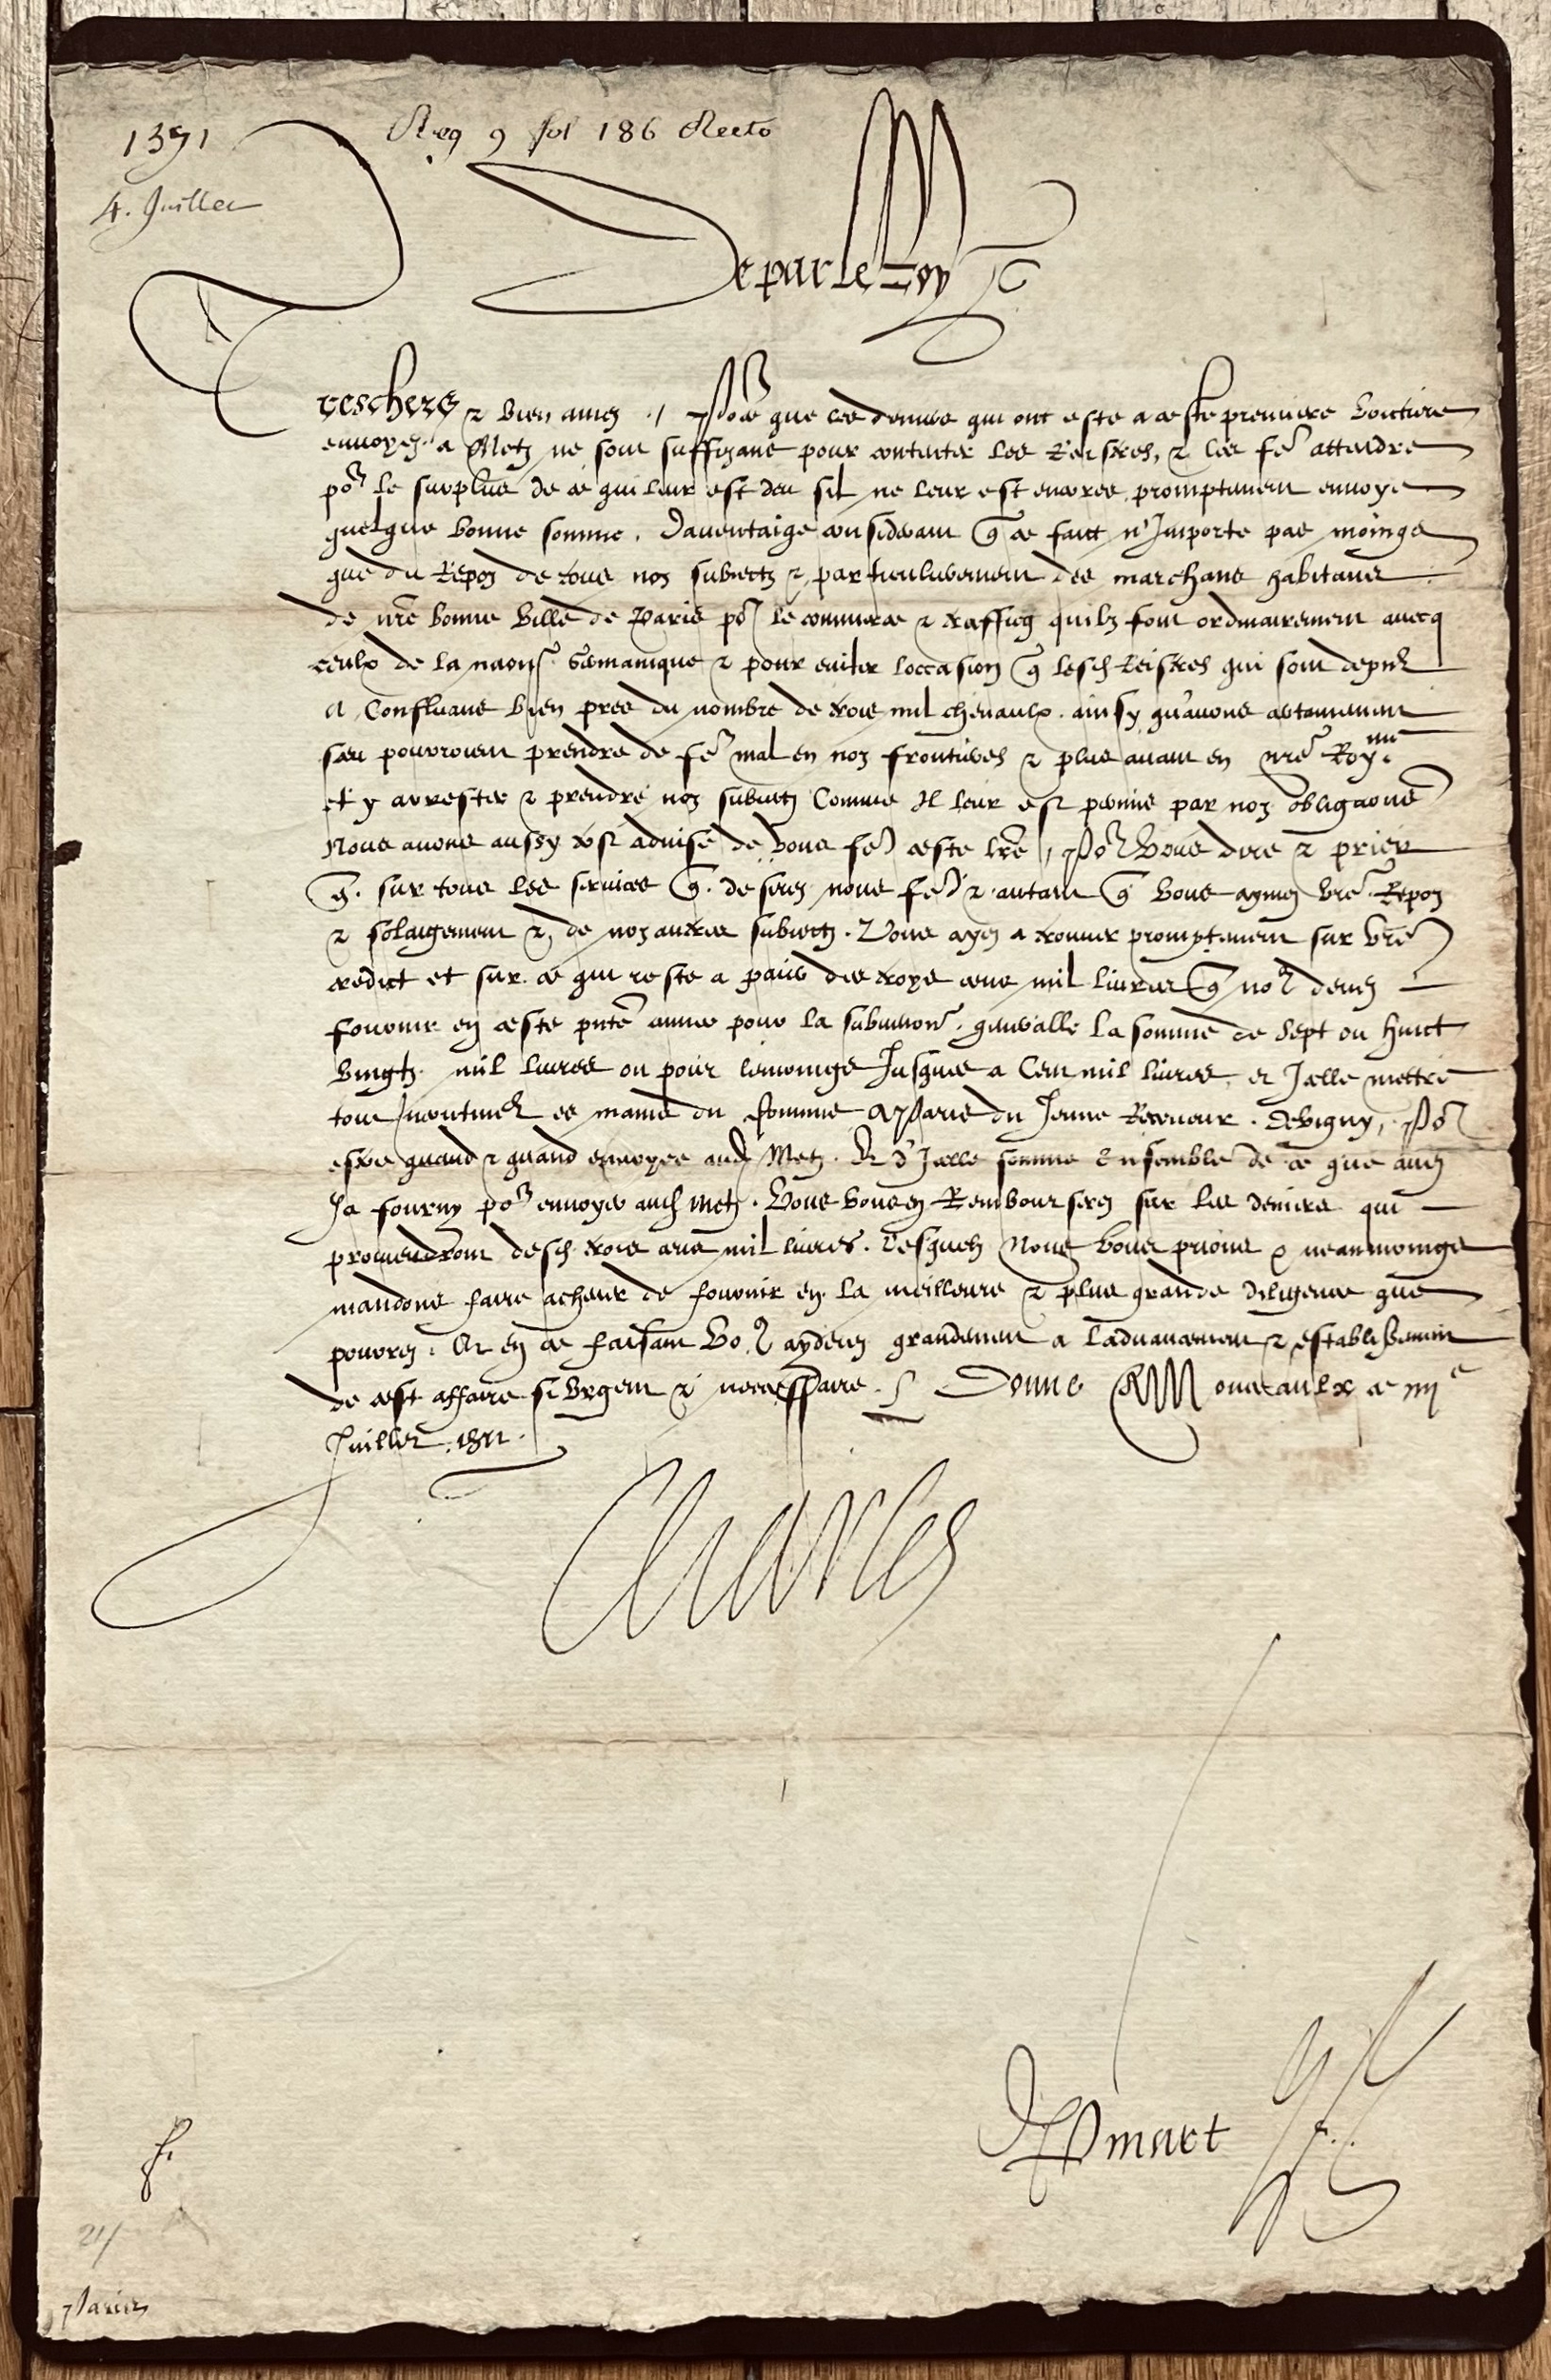 1571 Reg 9 fol 186 Recto
4. Juillet
De par le Roy
Treschers & bien amez . / Pource que les deniers qui ont esté a ceste premiere voicture
envoyez a Metz ne sont suffizans pour contenter les Reistres, & les fere attendre
por le surplus de ce qui leur est deu sil ne leur est encores promptement envoyé
quelque bonne somme . Daventaige considerant q ce faict n'Importe pas moings
que du Repoz de tous noz subiectz & particulierement des marchans habitans
de nre bonne ville de Paris por le commerce & trafficq quilz font ordinairement avecq
ceulx de la naon germanique & pour eviter loccasion q lesd Reistres qui sont
A Conflans bien pres du nombre de trois mil chevaulx . ainsy qu'avons certainement
sceu pourroient prendre de fere mal en noz frontieres & plus avant en nre Roy.me
et y arrester & prendre noz subiectz Comme Il leur est permis par noz obligaons
Nous avons aussy tost advisé de vous fere ceste lre , Por Vous dire & prier
q . sur tous les services q . desirez nous fere & autant q vous aymez vre Repoz
& solaigement & de noz autres subiectz . Vous ayez a trouver promptement sur vre
credict et sur ce qui reste a paier des troys cens mil livres q nos devez
fournir en ceste pnte annee pour la subvention generalle la somme de Sept ou huict
vingtz mil livres ou pour lemoings Jusques a Cent mil livres, et Jcelle mettre
tout Incontinent es mains du commis A Paris du Jeune Receveur . Devigny, Por
estre quand & quand envoyee aud Metz . Et d'Jcelle somme Ensemble de ce que avez
Ja fourny por envoyer aud Metz . Vous vous en Rembourserez sur les deniers qui
proviendront desd trois cens mil livres . Lesquelz Nous vous prions & neanmoings
mandons faire achever de fournir en la meilleure & plus grande diligence que
pourrez . Et en ce faisant Vos ayderez grandement a ladvancement & establissement
de cest affaire si Urgent & necessaire . Donné A Monceaulx ce iiije
Juillet . 1571 .
Charles
Pinart
Paris